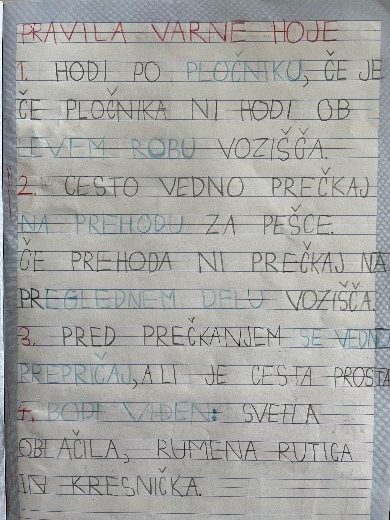 PRAVILA VARNE HOJE
1. HODI PO PLOČNIKU, ČE JE
ČE PLOČNIKA NI HODI OB
LEVEM ROBU VOZIŠČA.
2. CESTO VEDNO PREČKAJ
NA PREHODU ZA PEŠCE.
ČE PREHODA NI PREČKAJ NA
PREGLEDNEM DELU VOZIŠČA.
3. PRED PREČKANJEM SE VEDNO
PREPRIČAJ, ALI JE CESTA PROSTA
4. BODI VIDEN: SVETLA
OBLAČILA, RUMENA RUTICA
IN KRESNIČKA.